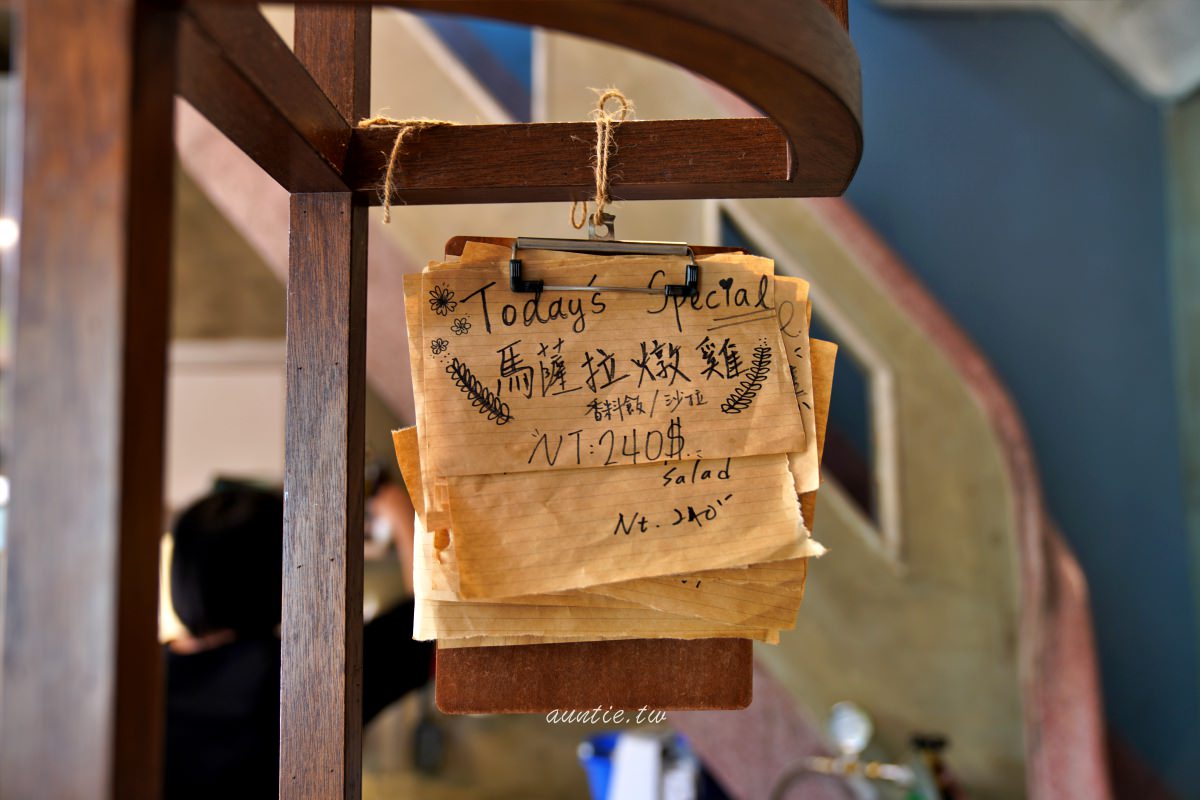 Today's Special
馬薩拉燉雞
香料飯/沙拉
NT:240$
salad
Nt. 240
auntie.tw